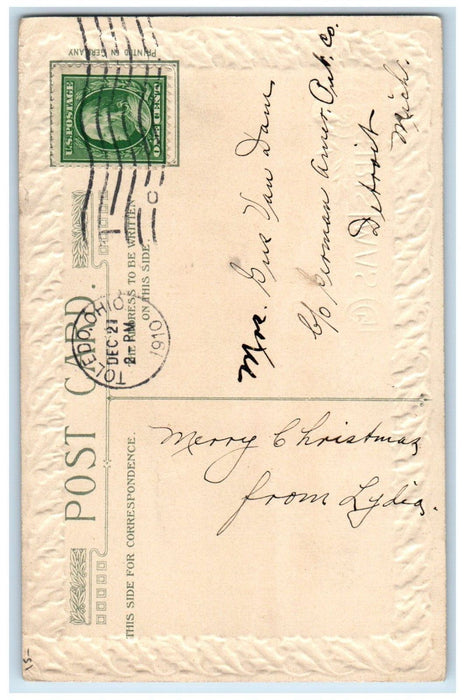 POST CARD.
PRINTED IN GERMANY
U.S. POSTAGE
ONE CENT
TOLEDO, OHIO
DEC 21
2-PM
1910
C
THE ADDRESS TO BE WRITTEN
ON THIS SIDE.
THIS SIDE FOR CORRESPONDENCE.
Merry Christmas
from Lydia.
Mrs. Gus Van Dam
C/o German Amer. Co.
Detroit
Mich.
15-